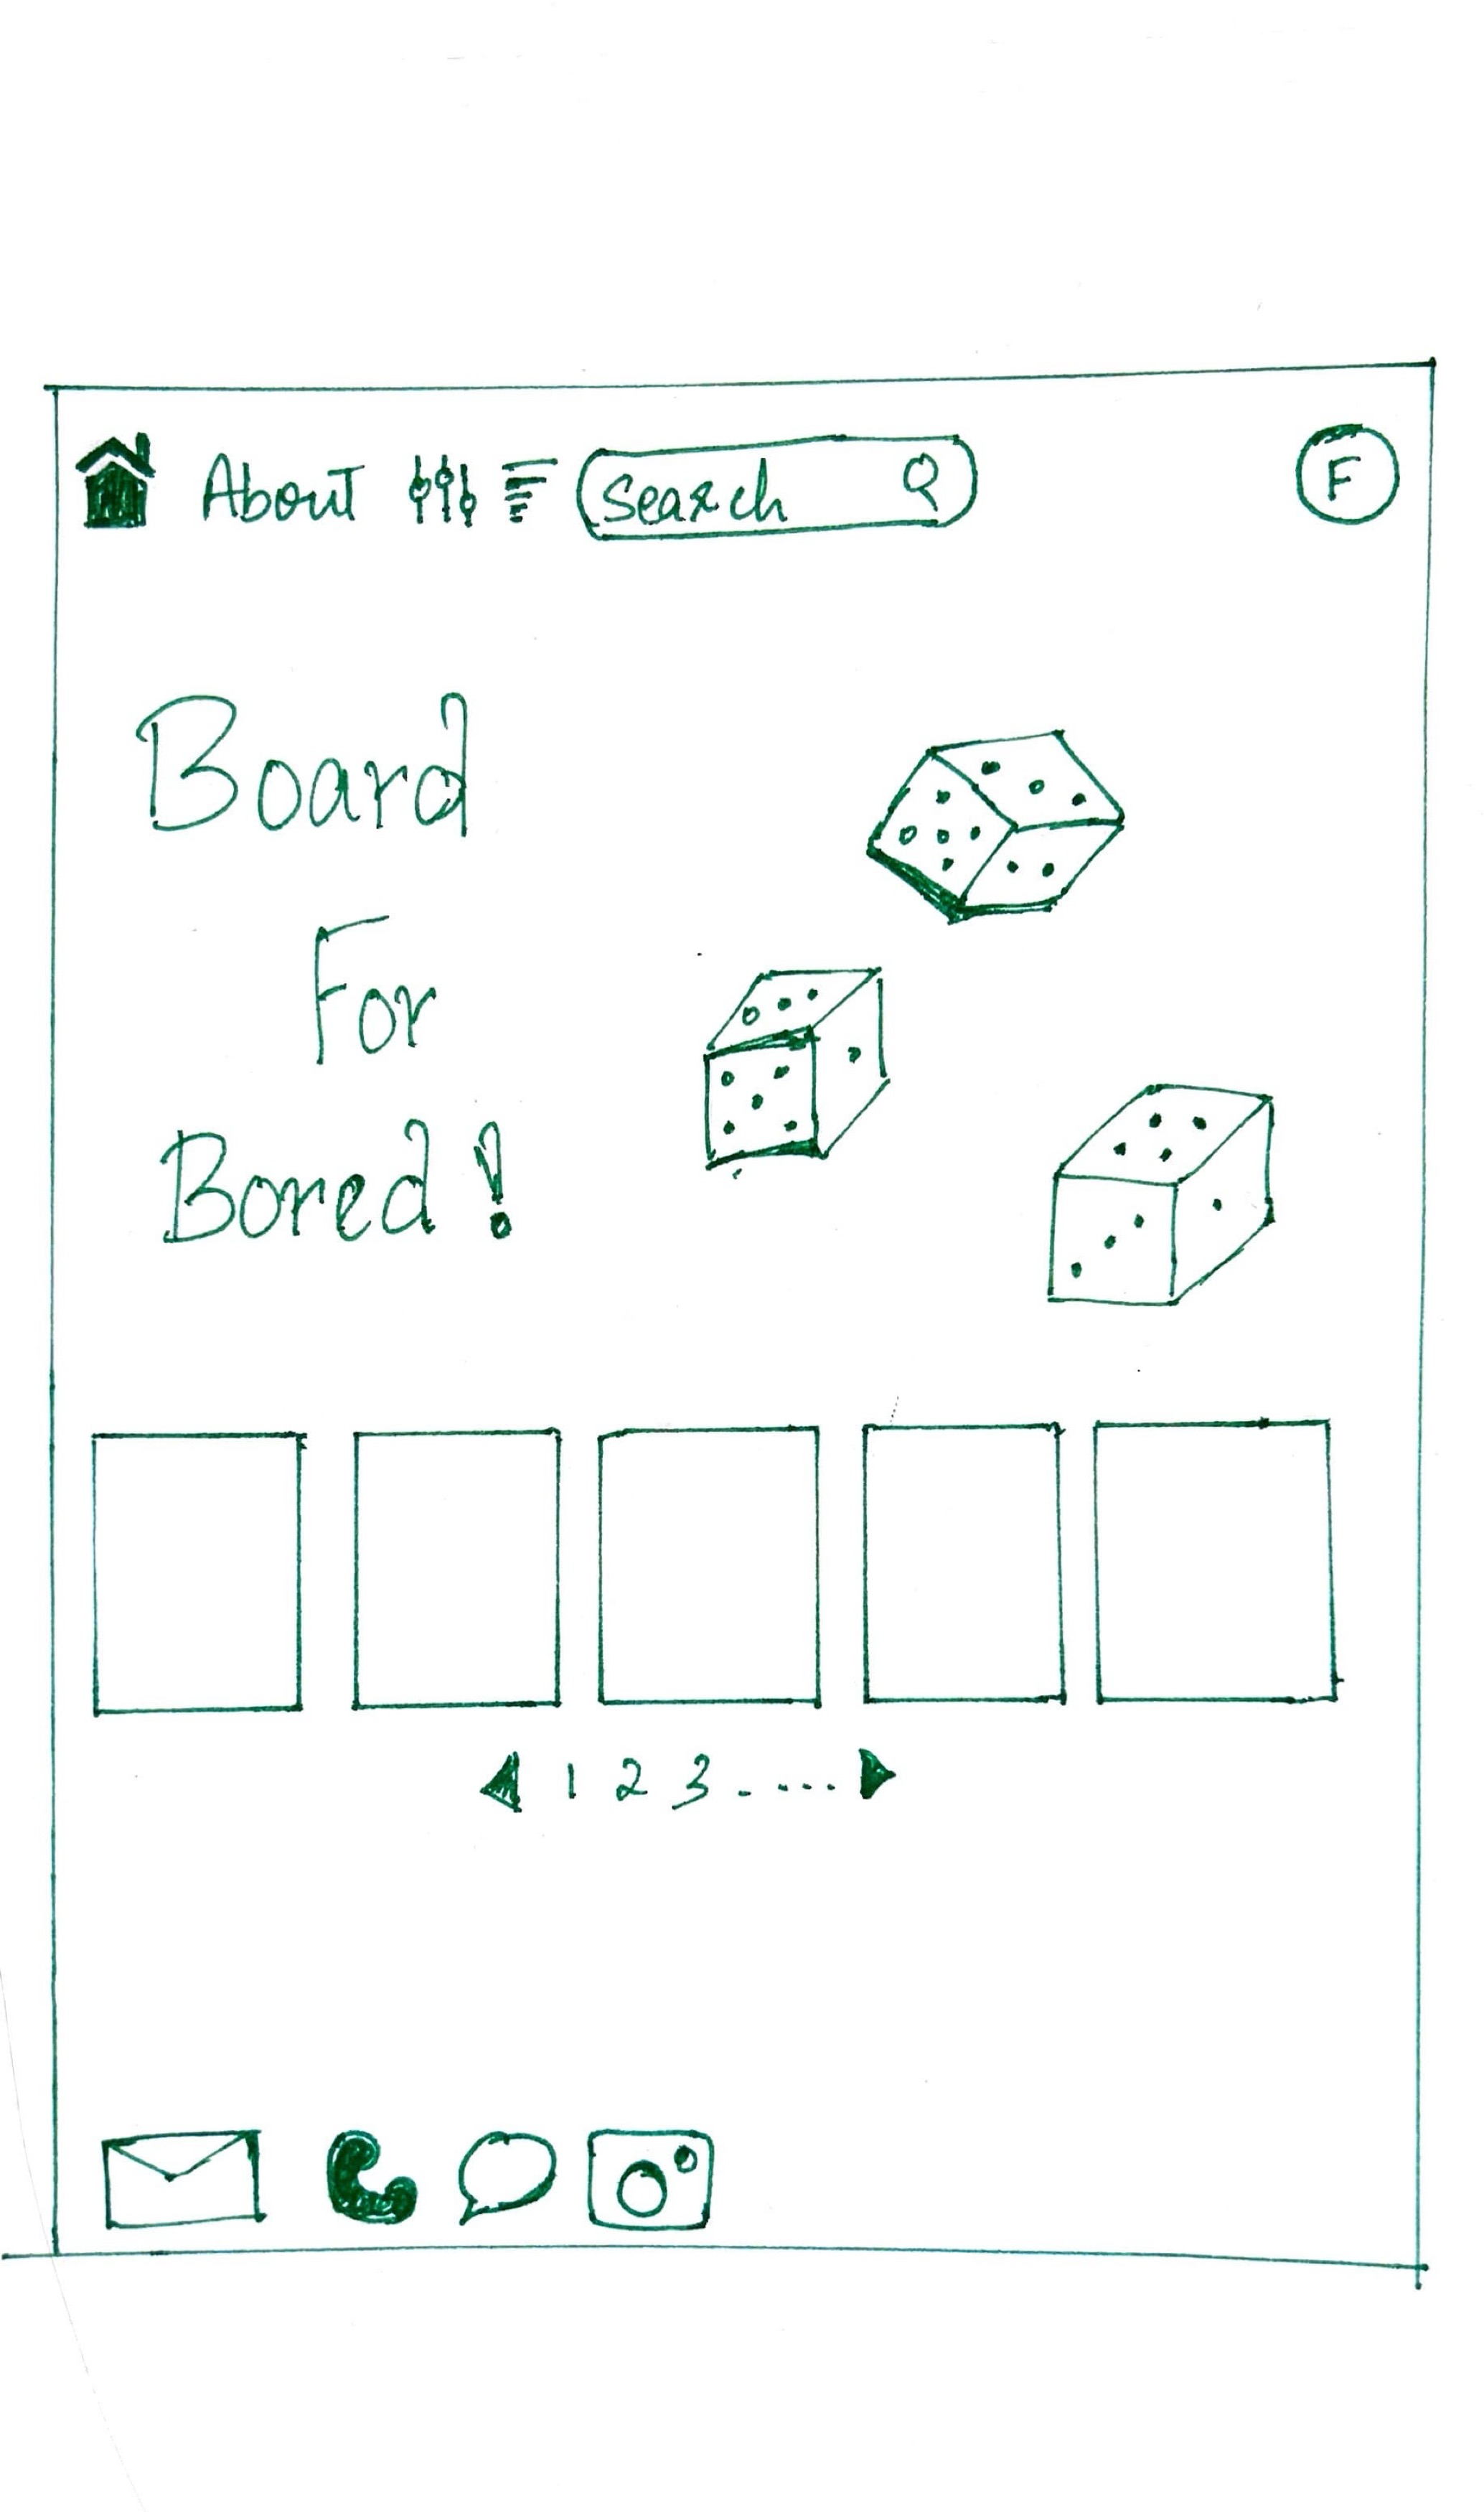 About search F
Board
For
Bored!
1 2 3.....